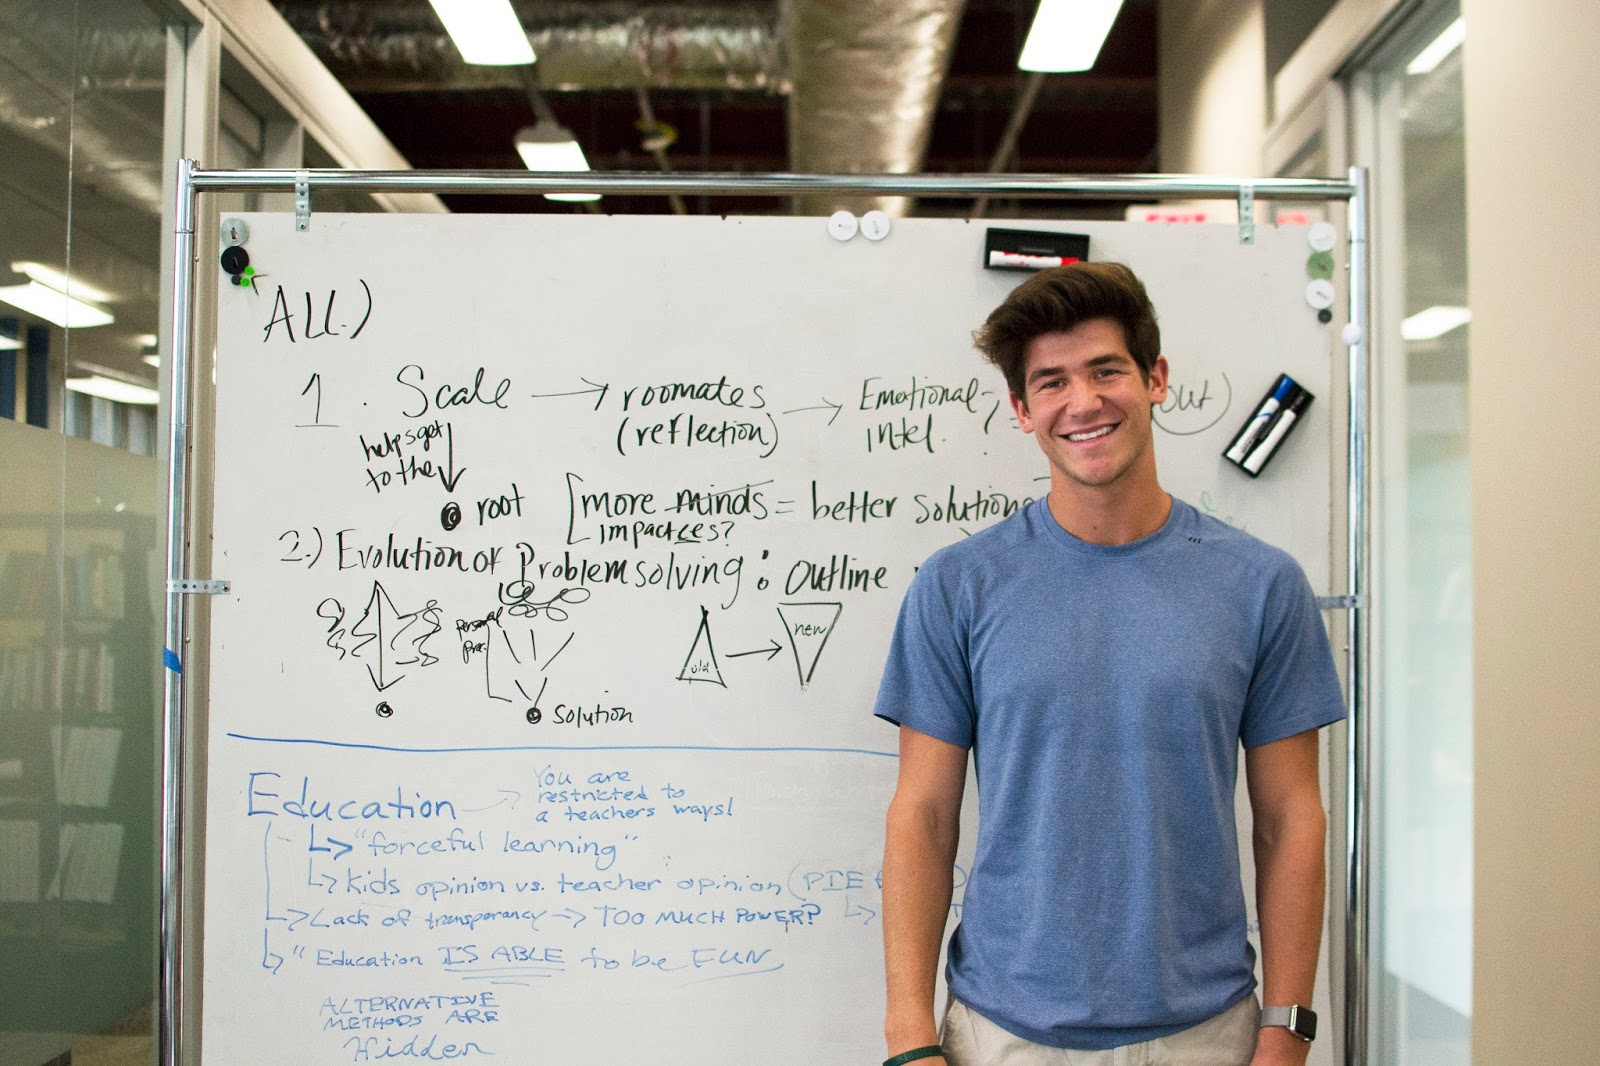 ALL.)
1. Scale → roomates → Emotional
(reflection) intel. ? = out)
helps get
to the
root [more minds = better solutions
impactees?
2.) Evolution of Problem solving : Outline
personal
old → new
solution
Education → You are
restricted to
a teachers ways!
↳ "forceful learning"
↳ Kids opinion vs. teacher opinion (PIE
→ Lack of transparancy → TOO MUCH POWER? ↳
↳ "Education IS ABLE to be FUN
ALTERNATIVE
METHODS ARE
Hidden